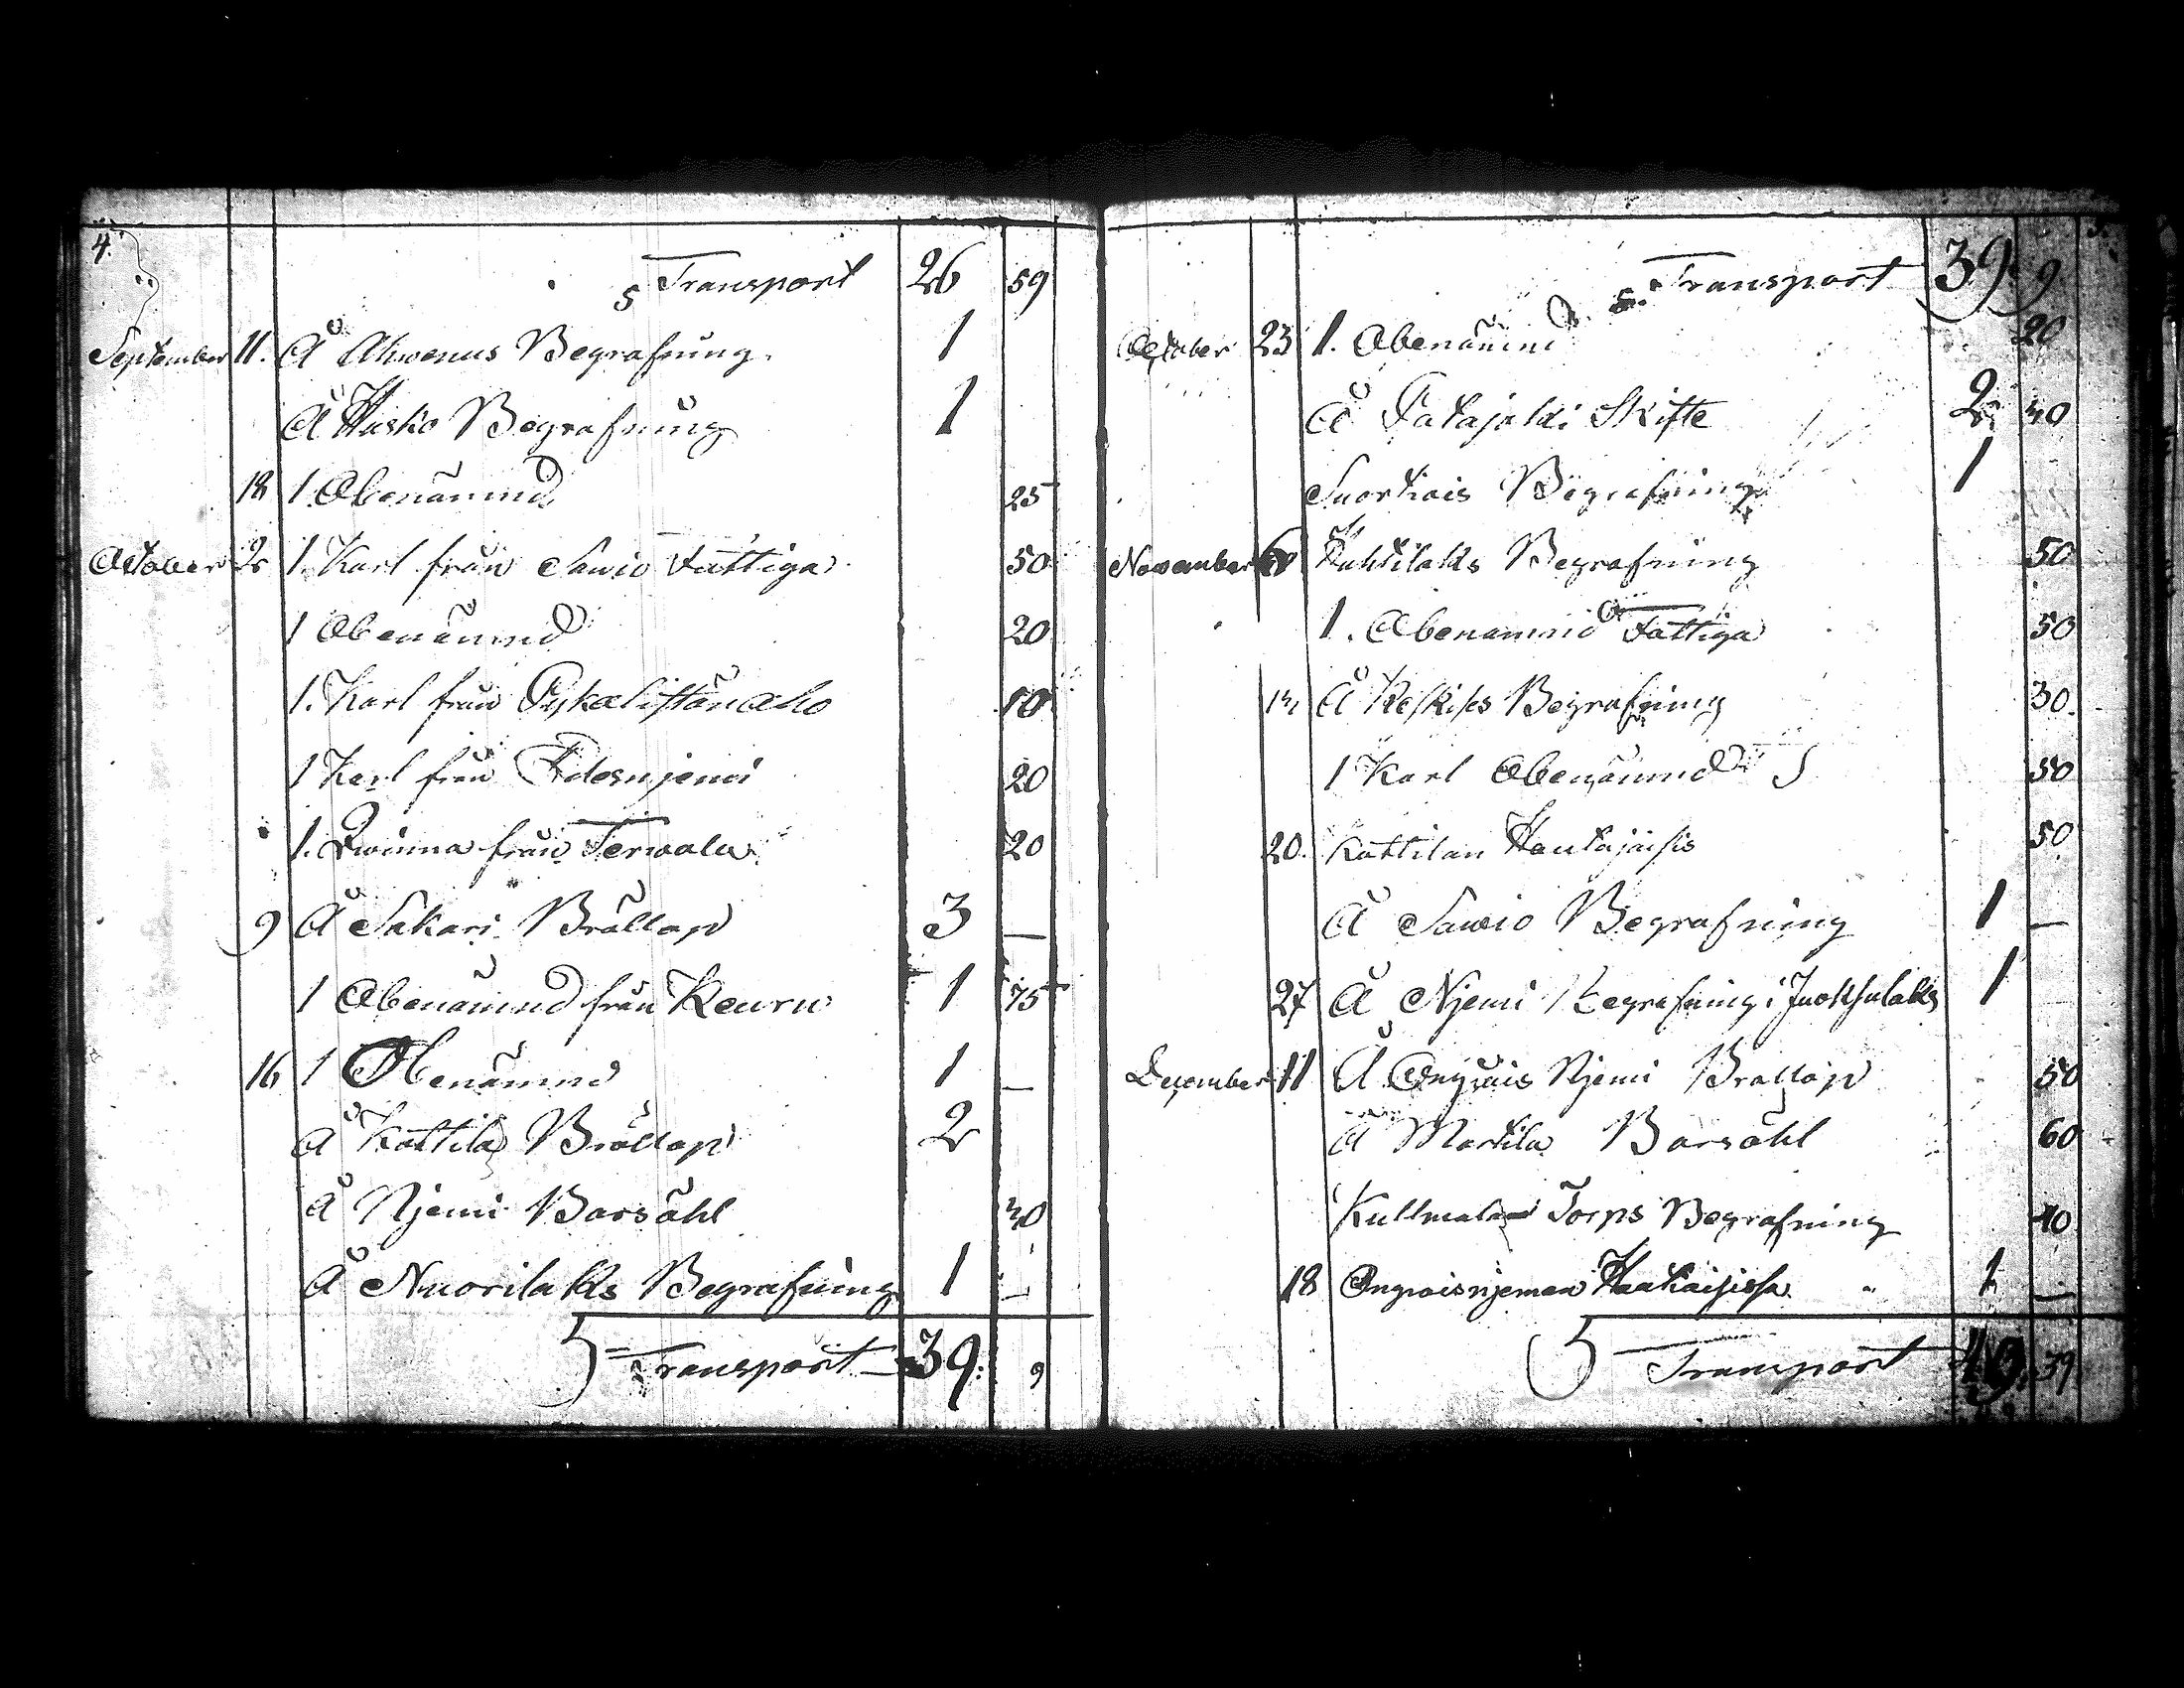 4.
Transport 26 59
September 11. Å Ahvenus Begrafning. 1
Å Husko Begrafning 1
18 1 Obenämnd 25
October 2 1. Karl från Sawio Fattiga 50
1 Obenämnd 20
1. Karl från 10
1 Karl från 20
1. Qwinna från Terwala 20
9 Å Sakari Bröllop 3 —
1 Obenämnd från Keuru 1 75
16 1 Obenämnd 1 —
Å Kottila Bröllop 2
Å Njemi Barsöhl 40
Å Nuorilaks Begrafning 1 —
Transport 39. 9
5.
Transport 39. 9.
October 23 1. Obenämnd 20
Å Skifte 2 40
Begrafning 1
November 6 Begrafning 50
1. Obenämnd Fattiga 50
Å Begrafning 30.
1 Karl Obenämnd 50
20. Kottilan 50
Å Sawio Begrafning 1 —
27 Å Njemi Begrafning i 1
December 11 Å Njemi Bröllop 50
Å Martila Barsöhl 60
Torps Begrafning 40
18 1 —
Transport 39